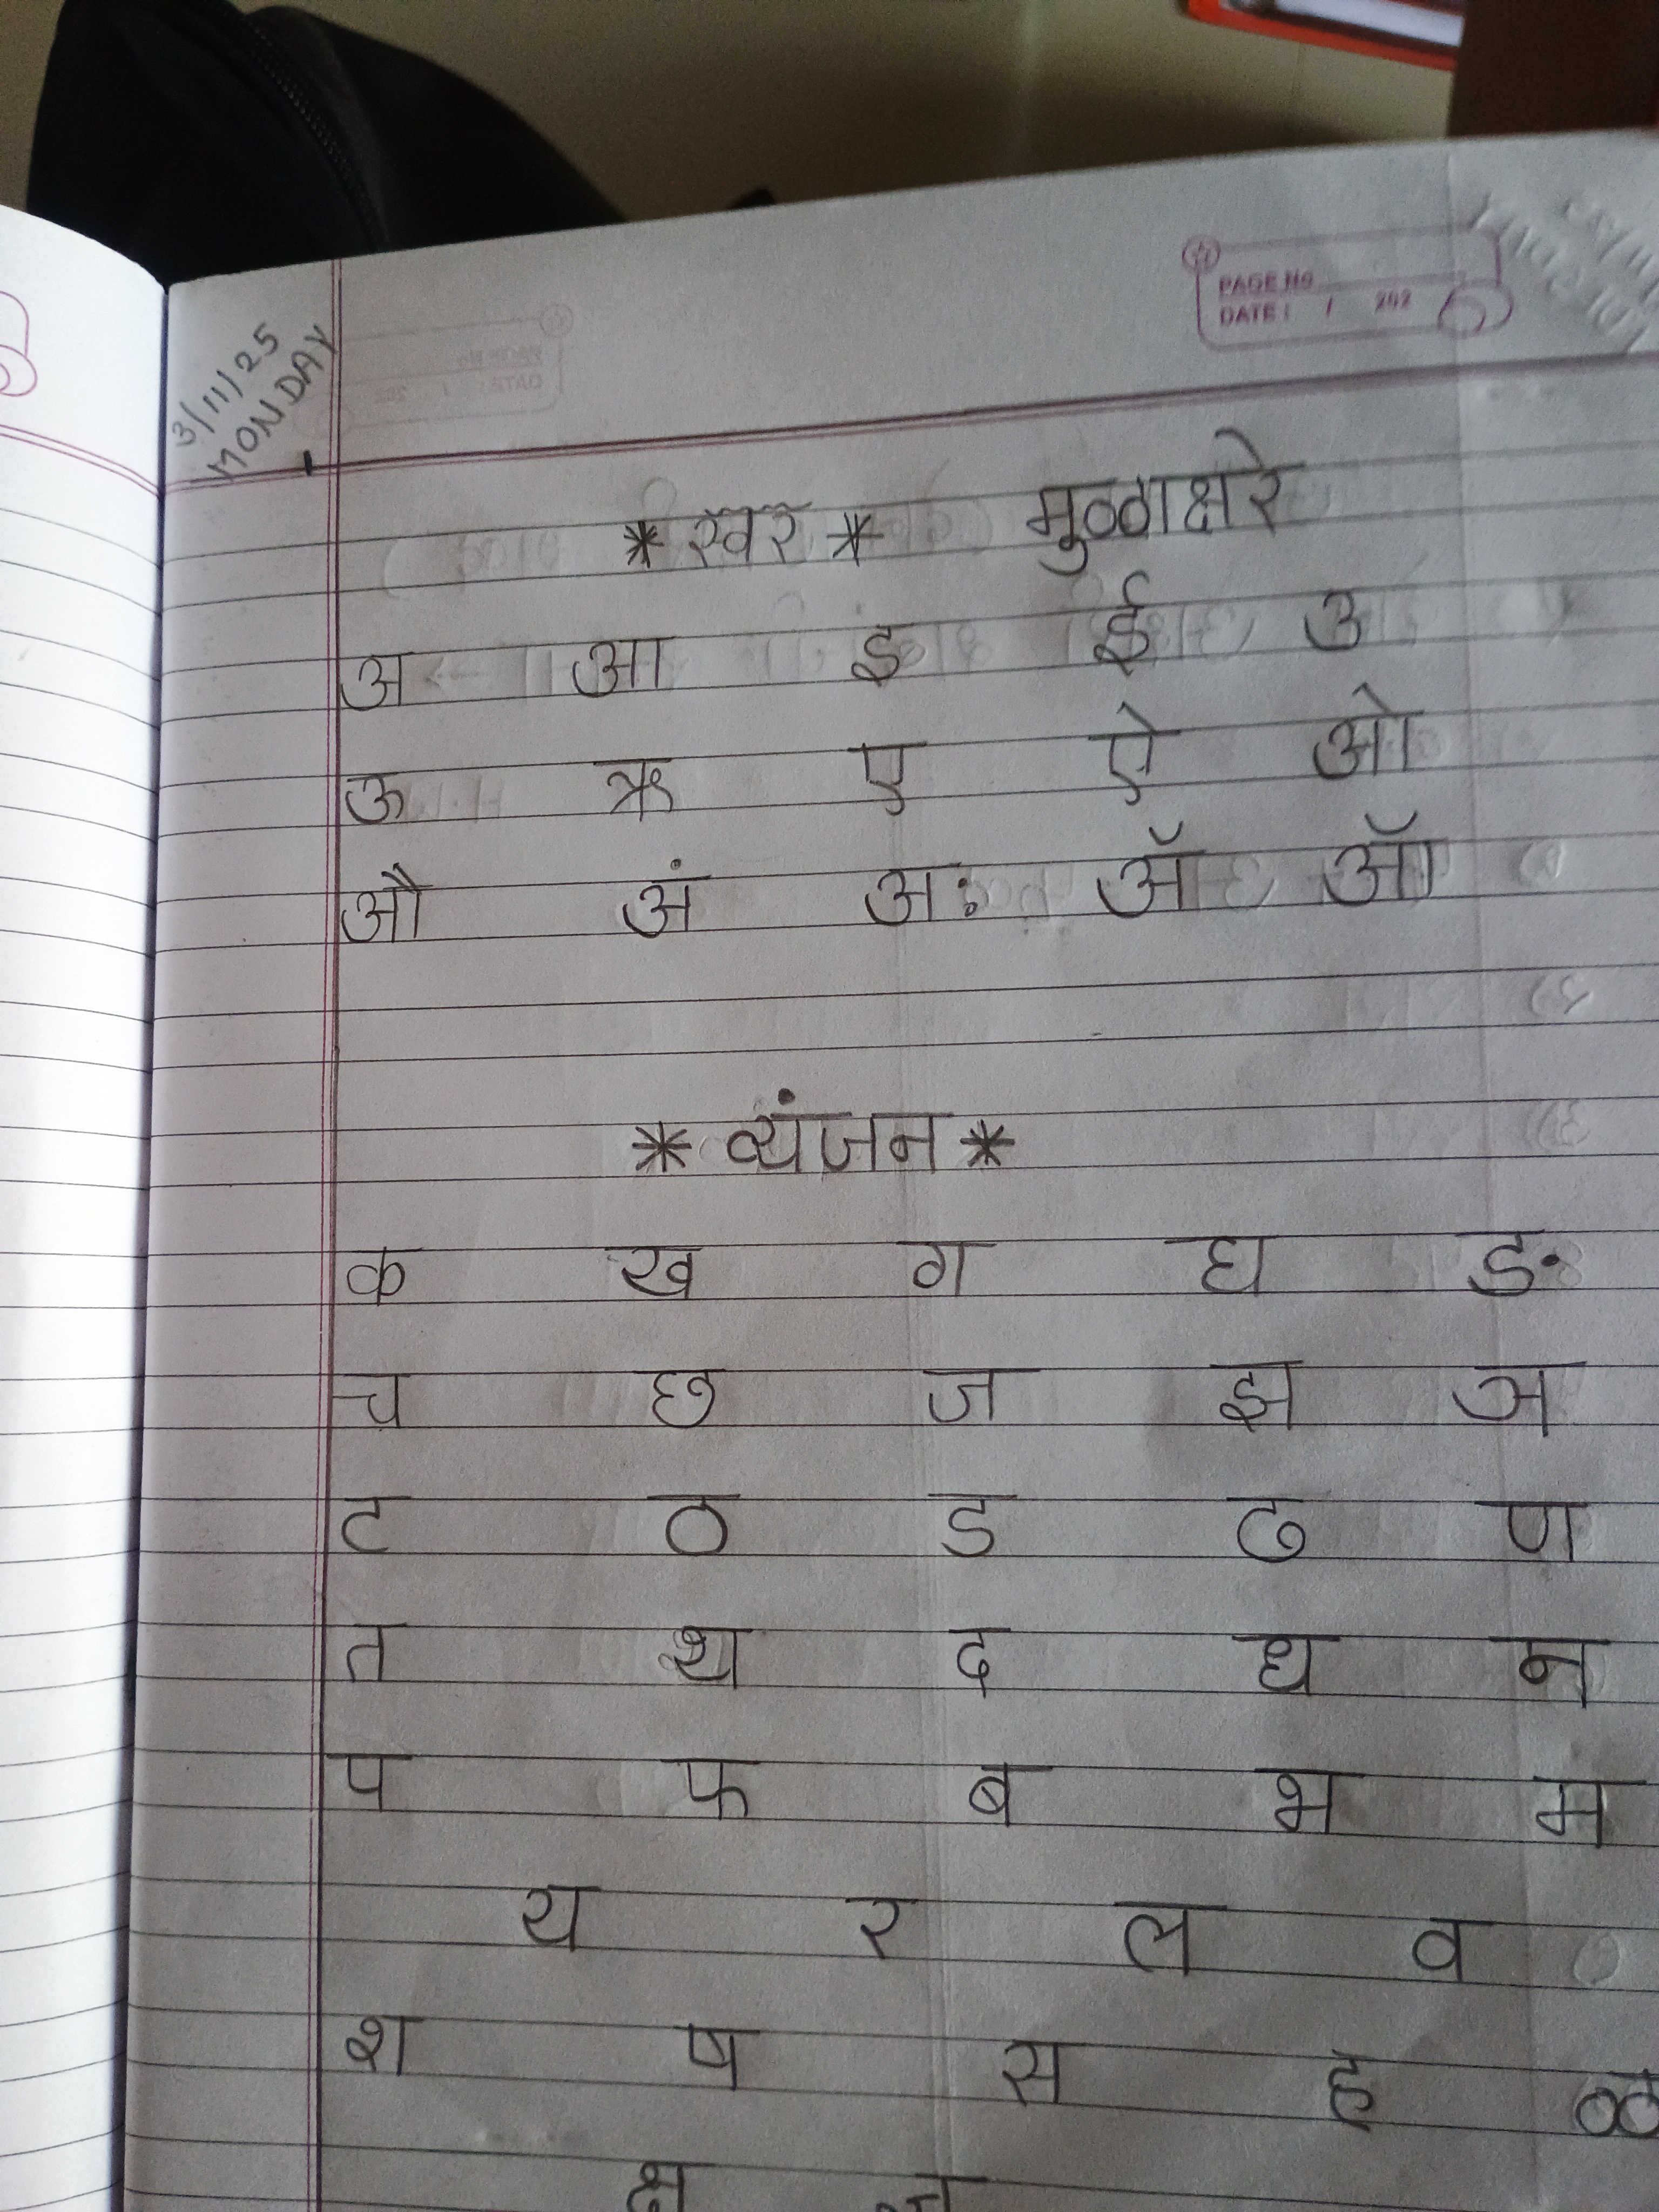 PAGE No
DATE: / 202
3/11/25
MONDAY
* स्वर * मुळाक्षरे
अ आ इ ई उ
ऊ ऋ ए ऐ ओ
औ अं अः ॲ ऑ
* व्यंजन *
क ख ग घ ङ
च छ ज झ ञ
ट ठ ड ढ ण
त थ द ध न
प फ ब भ म
य र ल व
श ष स ह ळ
क्ष